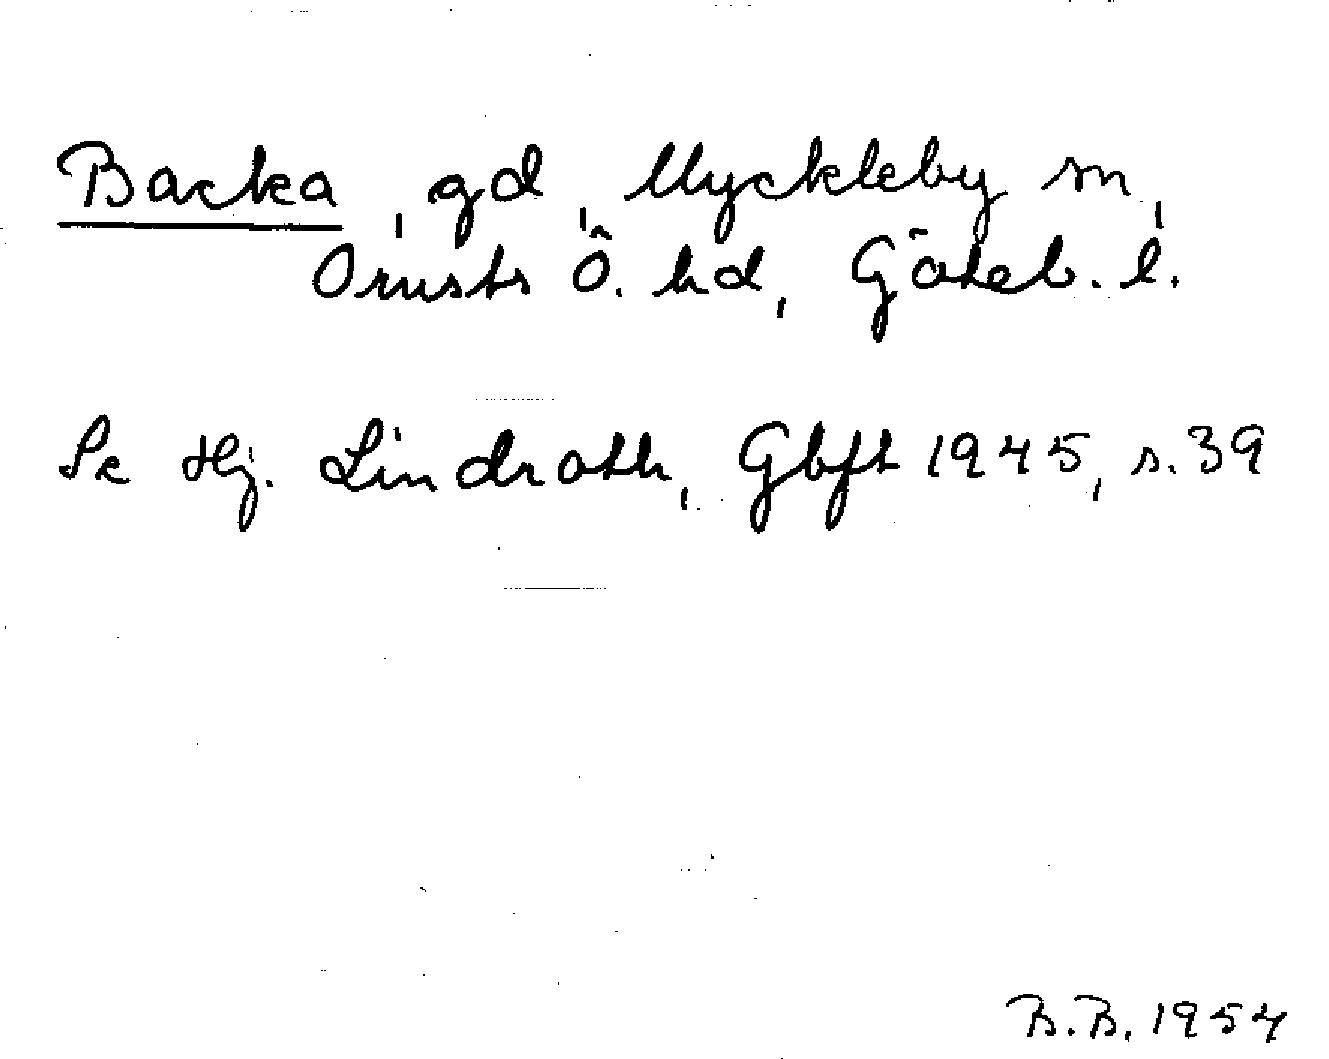 Backa, gd, Myckleby sn,
Orusts Ö. hd, Göteb. l.
Se Hj. Lindroth, Gbft 1945, s. 39
B.B. 1954